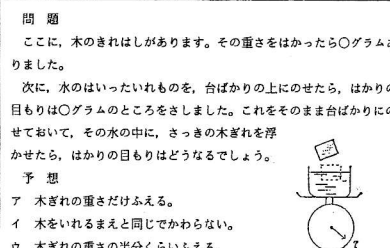 問 題
ここに，木のきれはしがあります。その重さをはかったら〇グラムあ
りました。
次に，水のはいったいれものを，台ばかりの上にのせたら，はかりの
目もりは〇グラムのところをさしました。これをそのまま台ばかりにの
せておいて，その水の中に，さっきの木ぎれを浮
かせたら，はかりの目もりはどうなるでしょう。
予 想
ア 木ぎれの重さだけふえる。
イ 木をいれるまえと同じでかわらない。
ウ 木ぎれの重さの半分くらいふえる
?